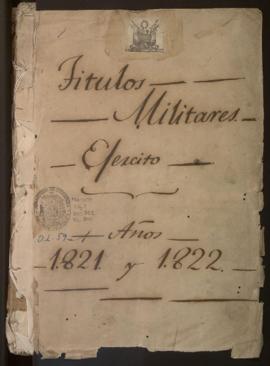 Titulos —
— Militares —
— Ejercito —
O.L. 59-1
Años —
— 1.821 y 1.822. —